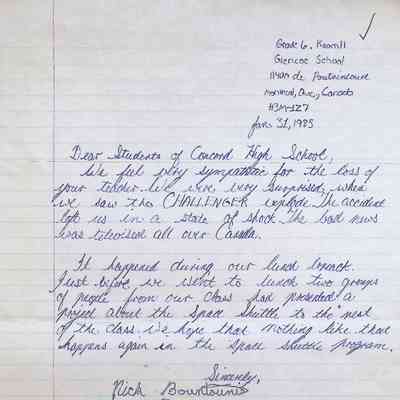 Grade 6, Room 11
Glencoe School
de
Montreal, Que., Canada
H3M-1Z7
Jan 31, 1985
Dear Students of Concord High School,
We feel very sympathetic for the loss of
your teacher. We were very surprised, when
we saw the CHALLENGER explode. The accident
left us in a state of shock. The bad news
was televised all over Canada.
It happened during our lunch break.
Just before we went to lunch two groups
of people from our class had presented a
project about the space shuttle to the rest
of the class. We hope that nothing like that
happens again in the space shuttle program.
Sincerely,
Nick